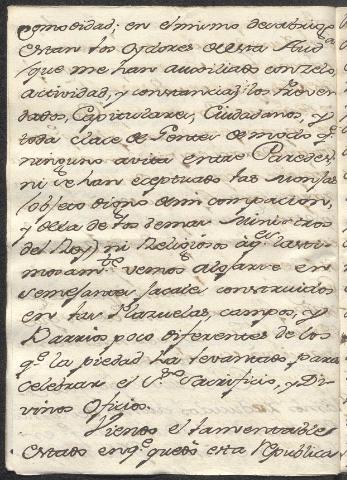 comodidad; en el mismo desabrigo
estan los Oydores de esta Aud.ª
(que me han auxiliado con zelo,
actividad, y constancia) los Preven
dados, Capitulares, Ciudadanos, y
toda clace de Gentes de modo q.e
ninguno avita entre Paredes,
ni se han eceptuado las Monjas
(objeto digno de mi compacion,
y de la de los demas Ministros
del Rey) ni Religiosos a q.es lasti-
mosam.te vemos alojarse en
semejantes jacales construidos
en las Plazuelas, campos, y
Barrios, poco diferentes de los
q.e la piedad ha levantado para
celebrar el S.to Sacrificio, y Di-
vinos Oficios.
Viendo el lamentable
estado en q.e quedó esta Republica